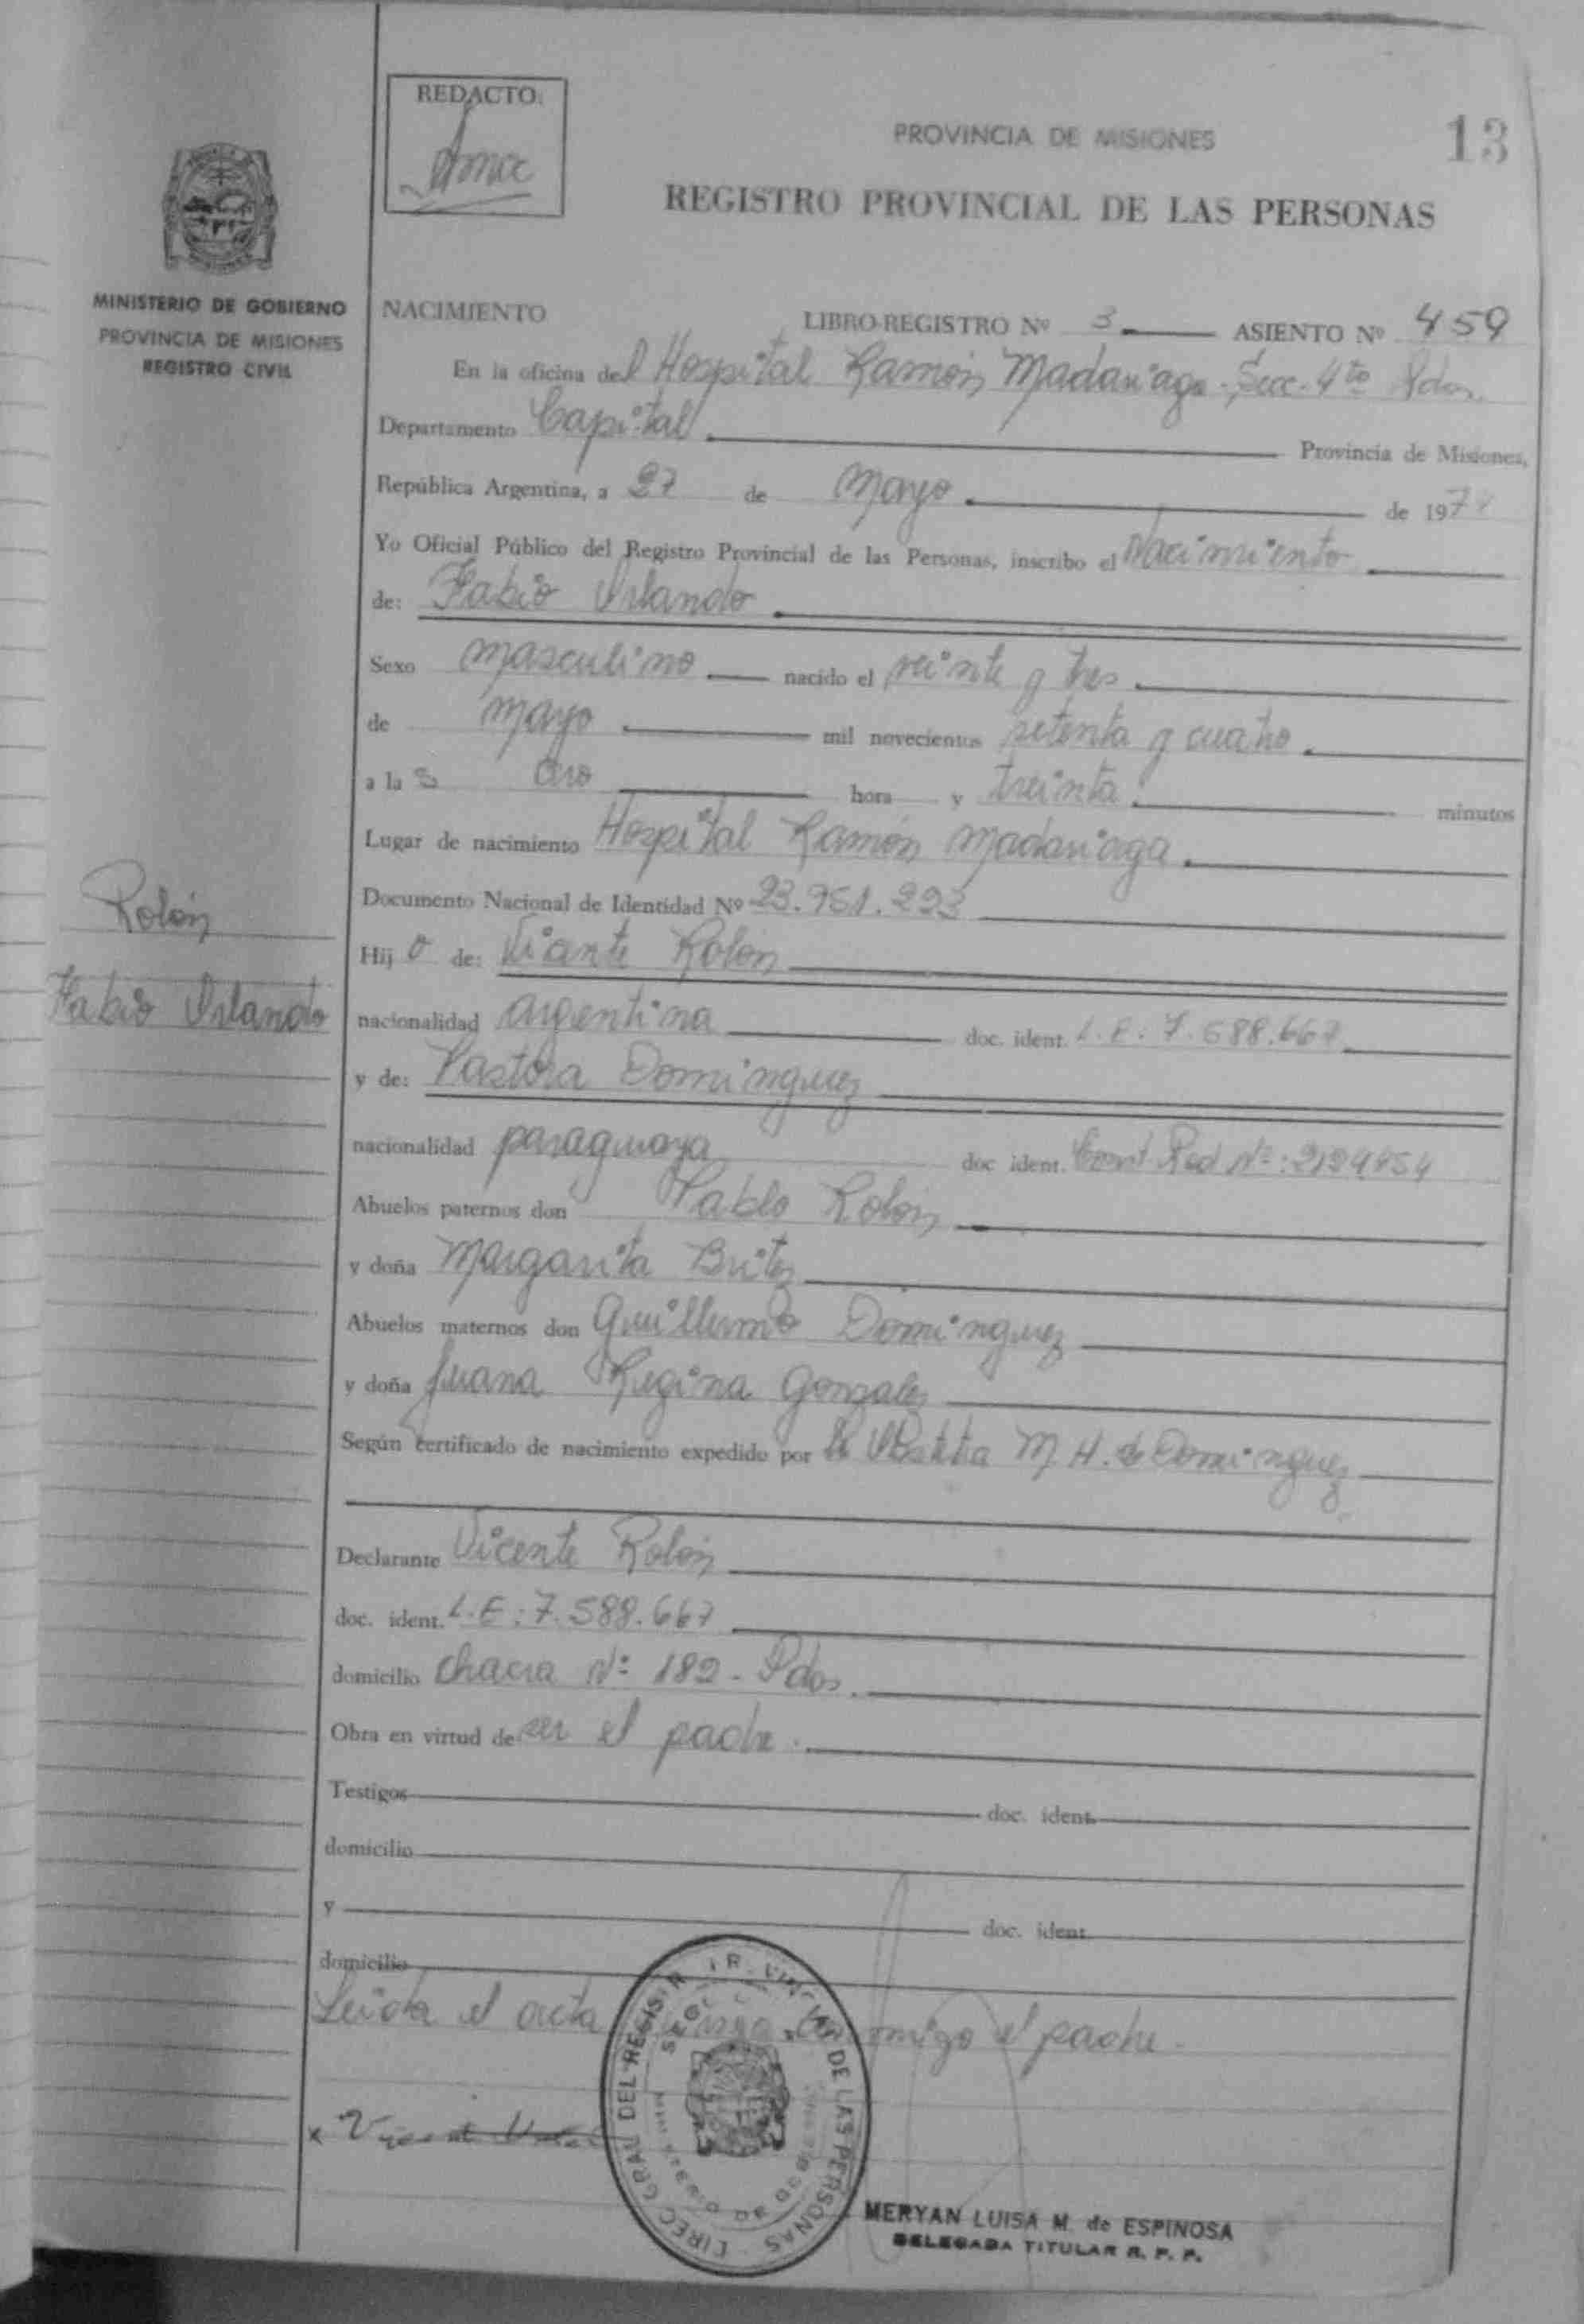 REDACTO:
PROVINCIA DE MISIONES
13
REGISTRO PROVINCIAL DE LAS PERSONAS
MINISTERIO DE GOBIERNO
PROVINCIA DE MISIONES
REGISTRO CIVIL
NACIMIENTO
LIBRO-REGISTRO Nº 3 ASIENTO Nº 459
En la oficina del Hospital Ramón Madariaga - Secc. 4ta Pdas.
Departamento Capital Provincia de Misiones,
República Argentina, a 27 de Mayo de 1974
Yo Oficial Público del Registro Provincial de las Personas, inscribo el Nacimiento
de: Fabio Orlando
Sexo masculino nacido el veinte y tres
de mayo mil novecientos setenta y cuatro
a la s hora y treinta minutos
Lugar de nacimiento Hospital Ramón Madariaga
Documento Nacional de Identidad Nº 23.951.293
Rolón
Fabio Orlando
Hij o de: Vicente Rolón
nacionalidad argentina doc. ident. L.E. 7.588.667
y de: Pastora Dominguez
nacionalidad paraguaya doc ident. Nº: 2124454
Abuelos paternos don Pablo Rolón
y doña Margarita Britez
Abuelos maternos don Guillermo Dominguez
y doña Juana Regina Gonzalez
Según certificado de nacimiento expedido por la Obstetra M. H. de Dominguez
Declarante Vicente Rolón
doc. ident. L.E: 7.588.667
domicilio chacra Nº 182 - Pdas.
Obra en virtud de ser el padre.
Testigos doc. ident.
domicilio
y doc. ident.
domicilio
Leída el acta conmigo el padre.
DIREC GRAL DEL REGISTR DE LAS PERSONAS
MERYAN LUISA M. de ESPINOSA
DELEGADA TITULAR R. P. P.